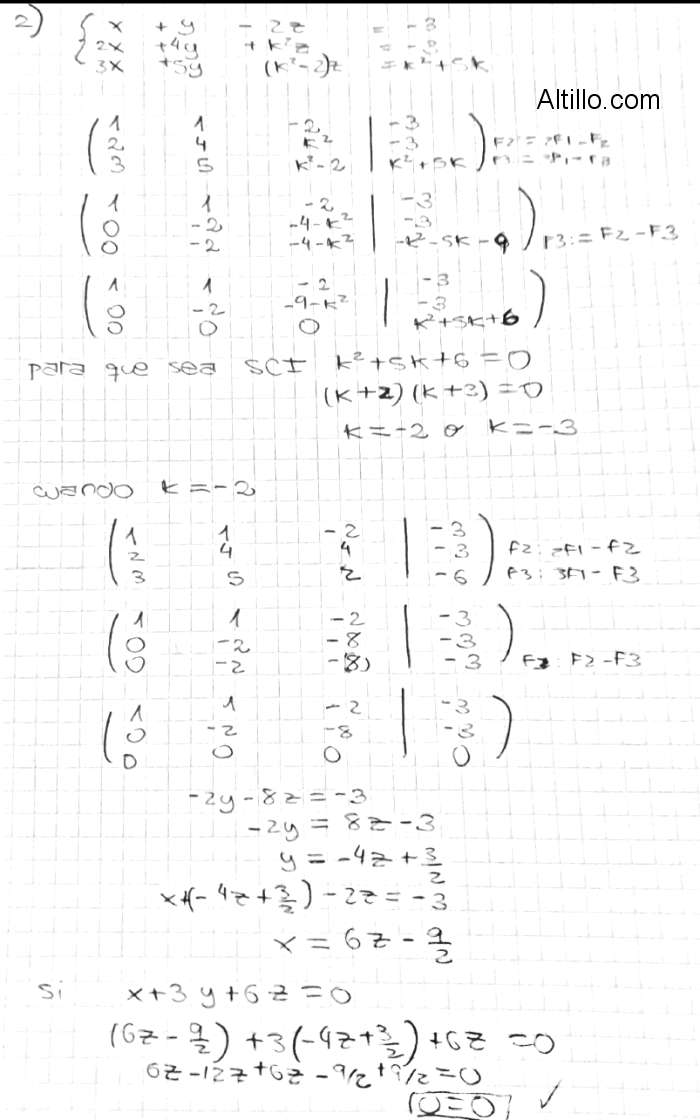 2) { x + y - 2z = -3
2x +4y + k²z = -3
3x +5y (k²-2)z = k²+5k
Altillo.com
( 1 1 -2 | -3 )
( 2 4 k² | -3 ) F2 = 2F1-F2
( 3 5 k²-2 | k²+5k )
( 1 1 -2 | -3 )
( 0 -2 -4-k² | -3 )
( 0 -2 -4-k² | -k²-5k-9 ) F3:= F2-F3
( 1 1 -2 | -3 )
( 0 -2 -9-k² | -3 )
( 0 0 0 | k²+5k+6 )
para que sea SCI k²+5k+6=0
(k+2)(k+3)=0
k=-2 o k=-3
cuando k=-2
( 1 1 -2 | -3 )
( 2 4 4 | -3 ) F2: 2F1-F2
( 3 5 2 | -6 ) F3: 3F1-F3
( 1 1 -2 | -3 )
( 0 -2 -8 | -3 )
( 0 -2 -(8) | -3 ) F2-F3
( 1 1 -2 | -3 )
( 0 -2 -8 | -3 )
( 0 0 0 | 0 )
-2y-8z=-3
-2y = 8z-3
y = -4z+3/2
x+(-4z+3/2)-2z=-3
x = 6z-9/2
Si x+3y+6z=0
(6z-9/2)+3(-4z+3/2)+6z=0
6z-12z+6z-9/2+9/2=0
(0=0) ✓